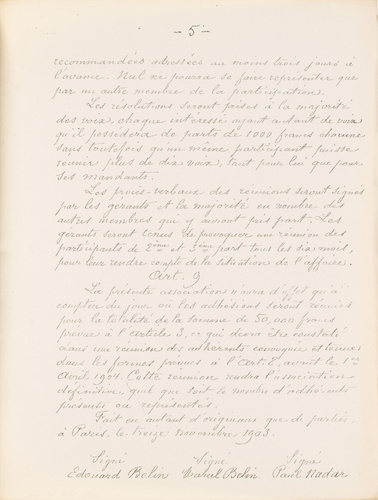 - 5 -
recommandées adressées au moins trois jours à
l'avance. Nul ne pourra se faire représenter que
par un autre membre de la participation.
Les résolutions seront prises à la majorité
des voix, chaque intéressé ayant autant de voix
qu'il possédera de parts de 1000 francs chacune
sans toutefois qu'un même participant puisse
réunir plus de dix voix, tant pour lui que pour
ses mandants.
Les procès-verbaux des réunions seront signés
par les gérants et la majorité en nombre des
autres membres qui y auront pris part. Les
gérants seront tenus de provoquer une réunion des
participants de 2ème et 3ème part tous les six mois,
pour leur rendre compte de la situation de l'affaire.
Art. 9
La présente association n'aura d'effet qu'à
compter du jour où les adhésions seront réunies
pour la totalité de la somme de 50,000 francs
prévue à l'article 3, ce qui devra être constaté
dans une réunion des adhérents convoquée et tenue
dans les formes prévues à l'art. 8, avant le 1er
Avril 1904. Cette réunion rendra l'association
définitive, quel que soit le nombre d'adhérents
présents ou représentés.
Fait en autant d'originaux que de parties,
à Paris, le treize novembre 1903.
Signé Signé Signé
Edouard Belin Marcel Belin Paul Nadar